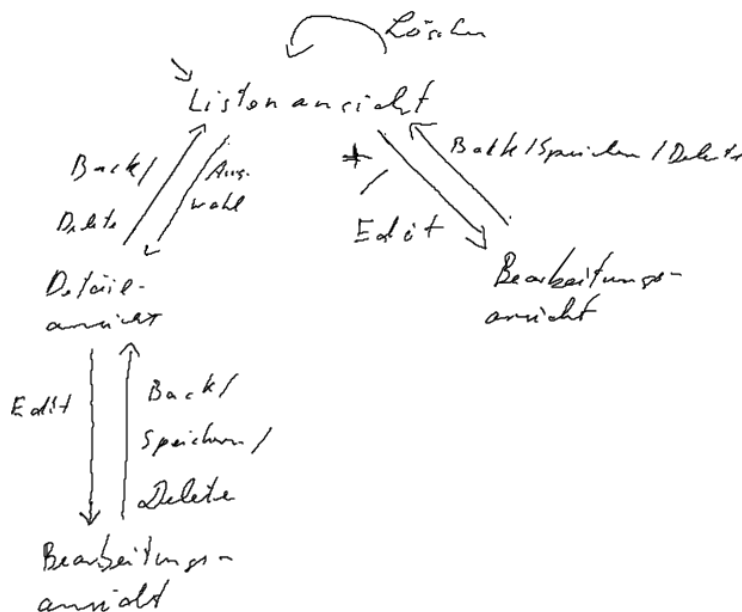 Löschen
Listenansicht
Back/
Delete
Aus-
wahl
+
/
Edit
Back/Speichern/Delete
Detail-
ansicht
Bearbeitungs-
ansicht
Edit
Back/
Speichern/
Delete
Bearbeitungs-
ansicht